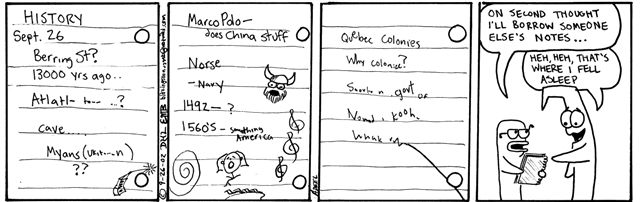 HISTORY
Sept. 26
Berring St?
13000 yrs ago..
Atlatl- ...?
cave.....
Myans
??
© 9-26-02
Marco Polo-
does China stuff
Norse
-Navy
1492-?
1560's - something
America
Québec Colonies
Why colonize?
govt of
ON SECOND THOUGHT
I'LL BORROW SOMEONE
ELSE'S NOTES...
HEH, HEH, THAT'S
WHERE I FELL
ASLEEP